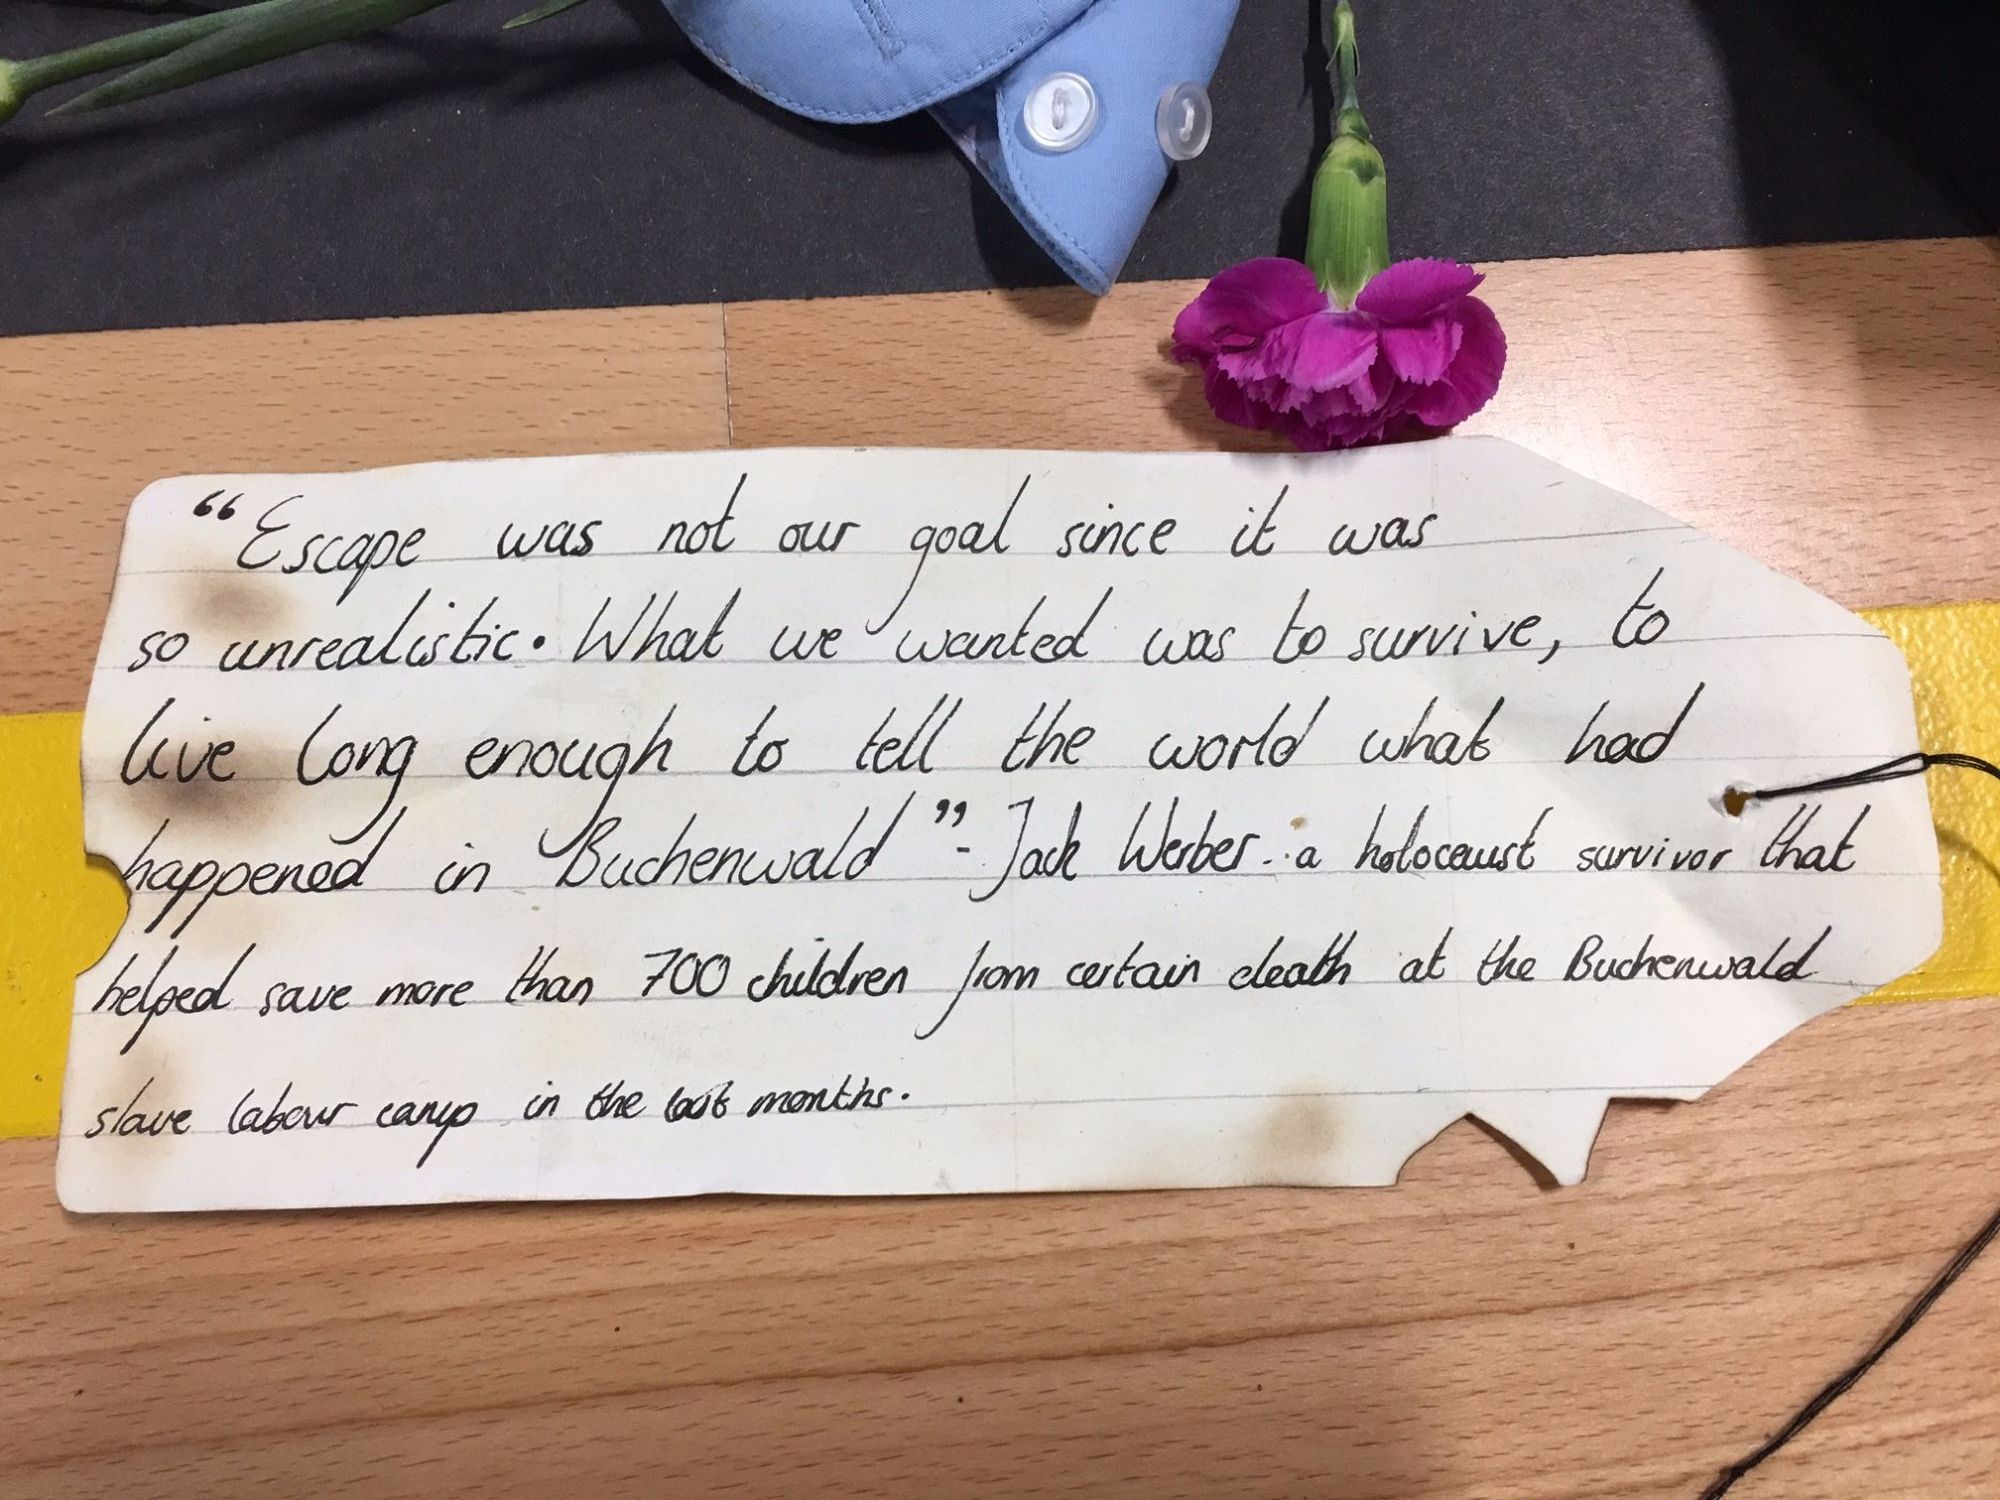 “Escape was not our goal since it was
so unrealistic. What we wanted was to survive, to
live long enough to tell the world what had
happened in Buchenwald” - Jack Werber - a holocaust survivor that
helped save more than 700 children from certain death at the Buchenwald
slave labour camp in the last months.